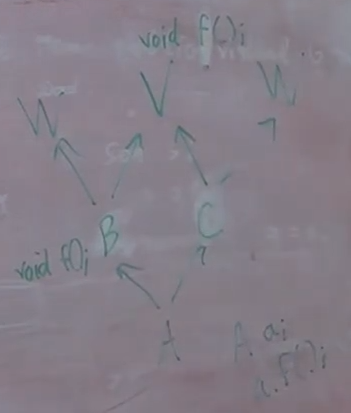 void f();
W V W
B C
void f();
A
A a;
a.f();